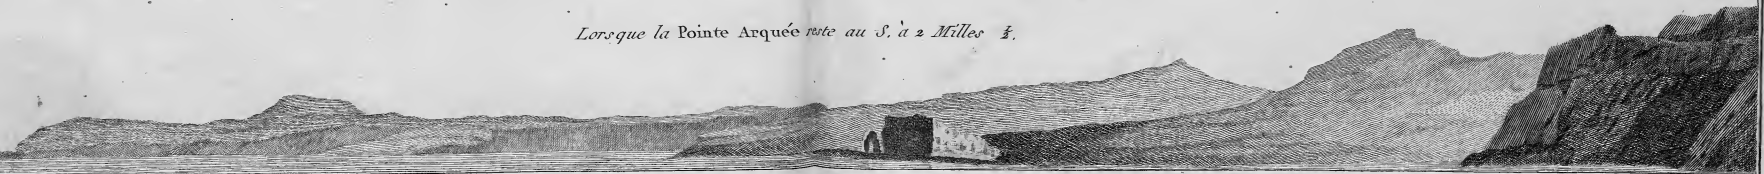 Lorsque la Pointe Arquée reste au S. à 2 Milles ½.